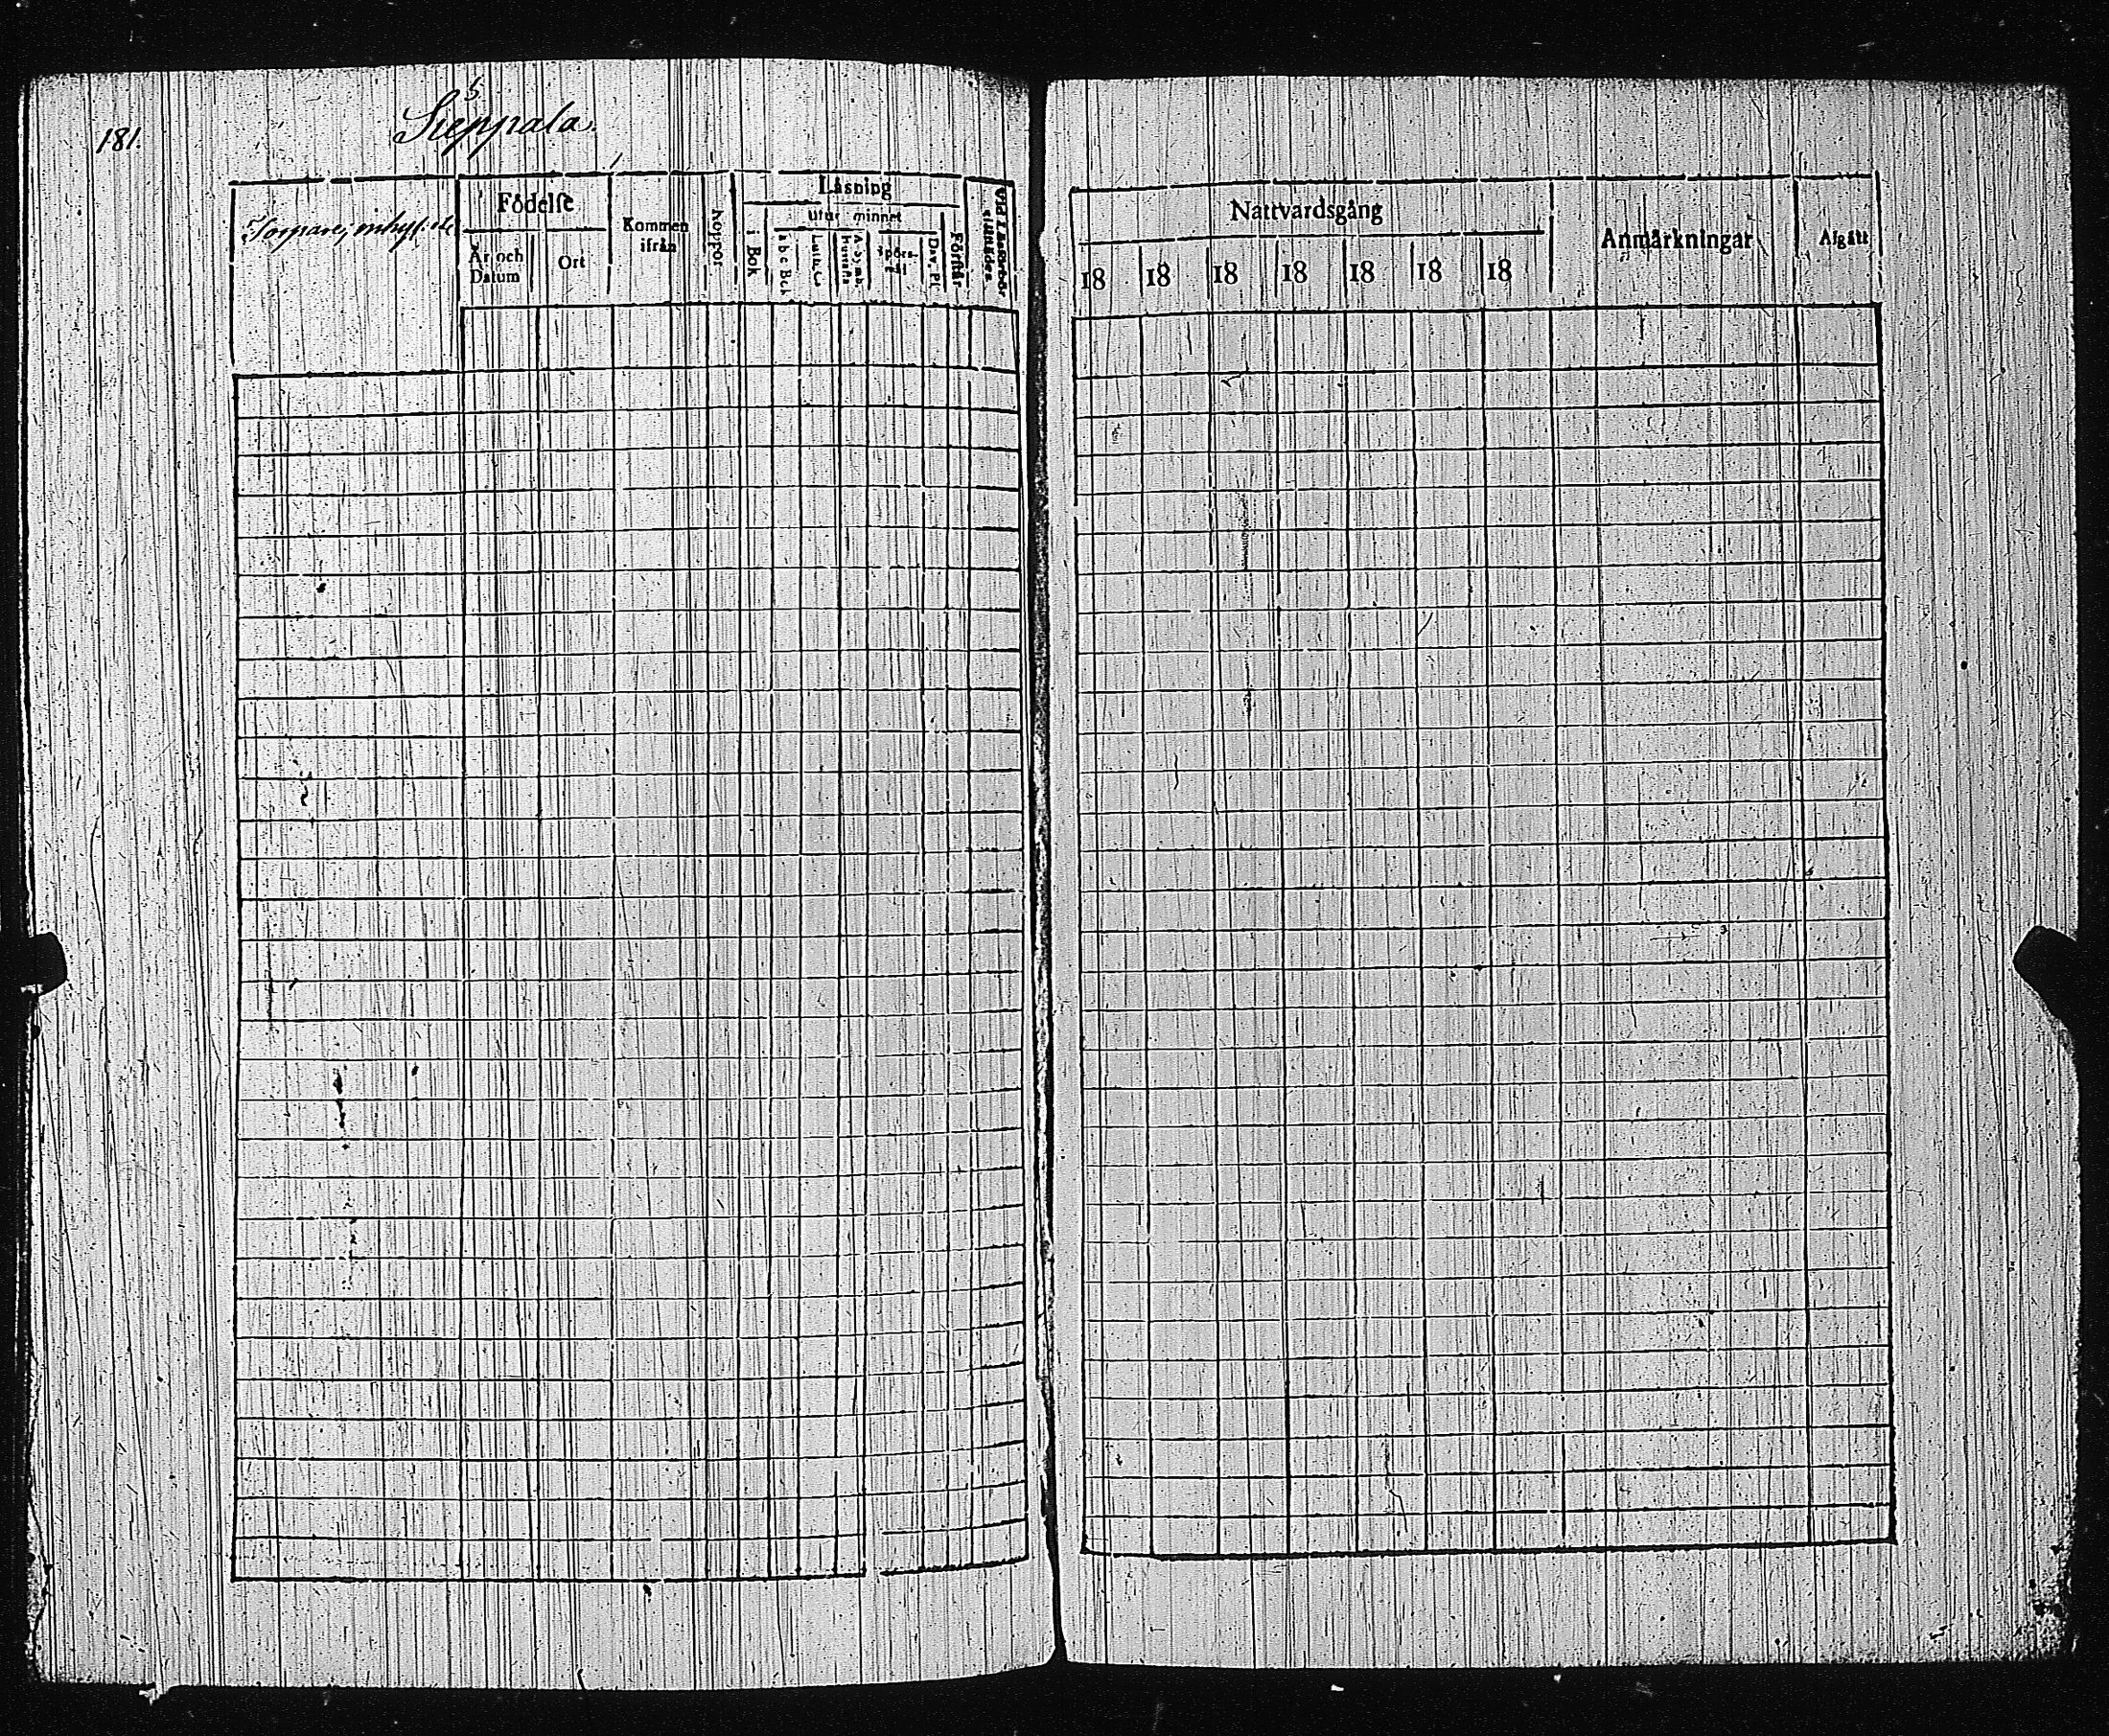 181.
5
Sieppala.
Torpare, inhys. etc
Födelse
År och Datum
Ort
Kommen ifrån
koppor
Läsning
i Bok
utur minnet
a b c Bok
Luth. C.
spörsmål
Dav. Ps.
Förstår
Nattvardsgång
18 18 18 18 18 18 18
Anmärkningar
Afgått